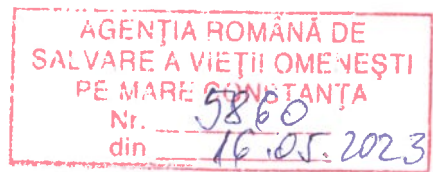 AGENȚIA ROMÂNĂ DE
SALVARE A VIEȚII OMENEȘTI
PE MARE CONSTANȚA
Nr. 5860
din 16.05.2023